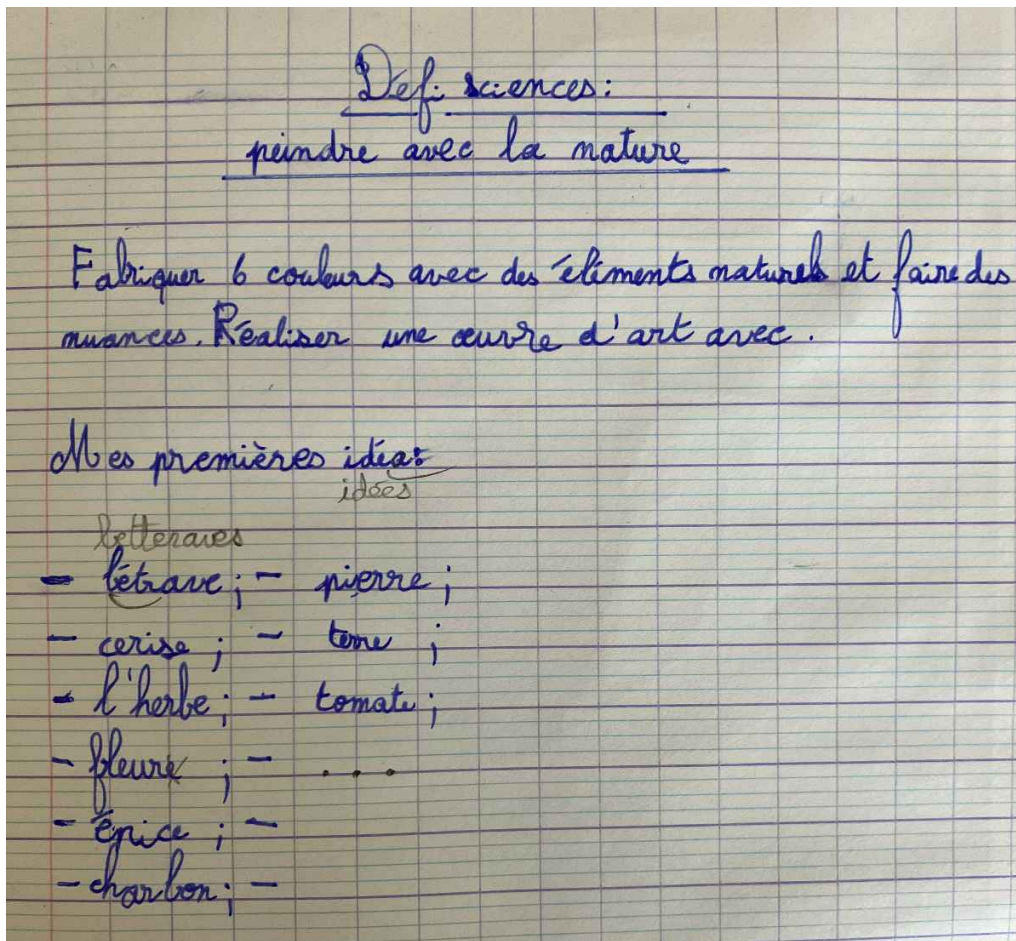 Défi sciences:
peindre avec la nature
Fabriquer 6 couleurs avec des éléments naturels et faire des
nuances. Réaliser une œuvre d'art avec.
Mes premières idéas
idées
betteraves
- bétrave ; - pierre ;
- cerise ; - terre ;
- l'herbe ; - tomate ;
- fleure ; - ...
- épice ; -
- charbon ; -